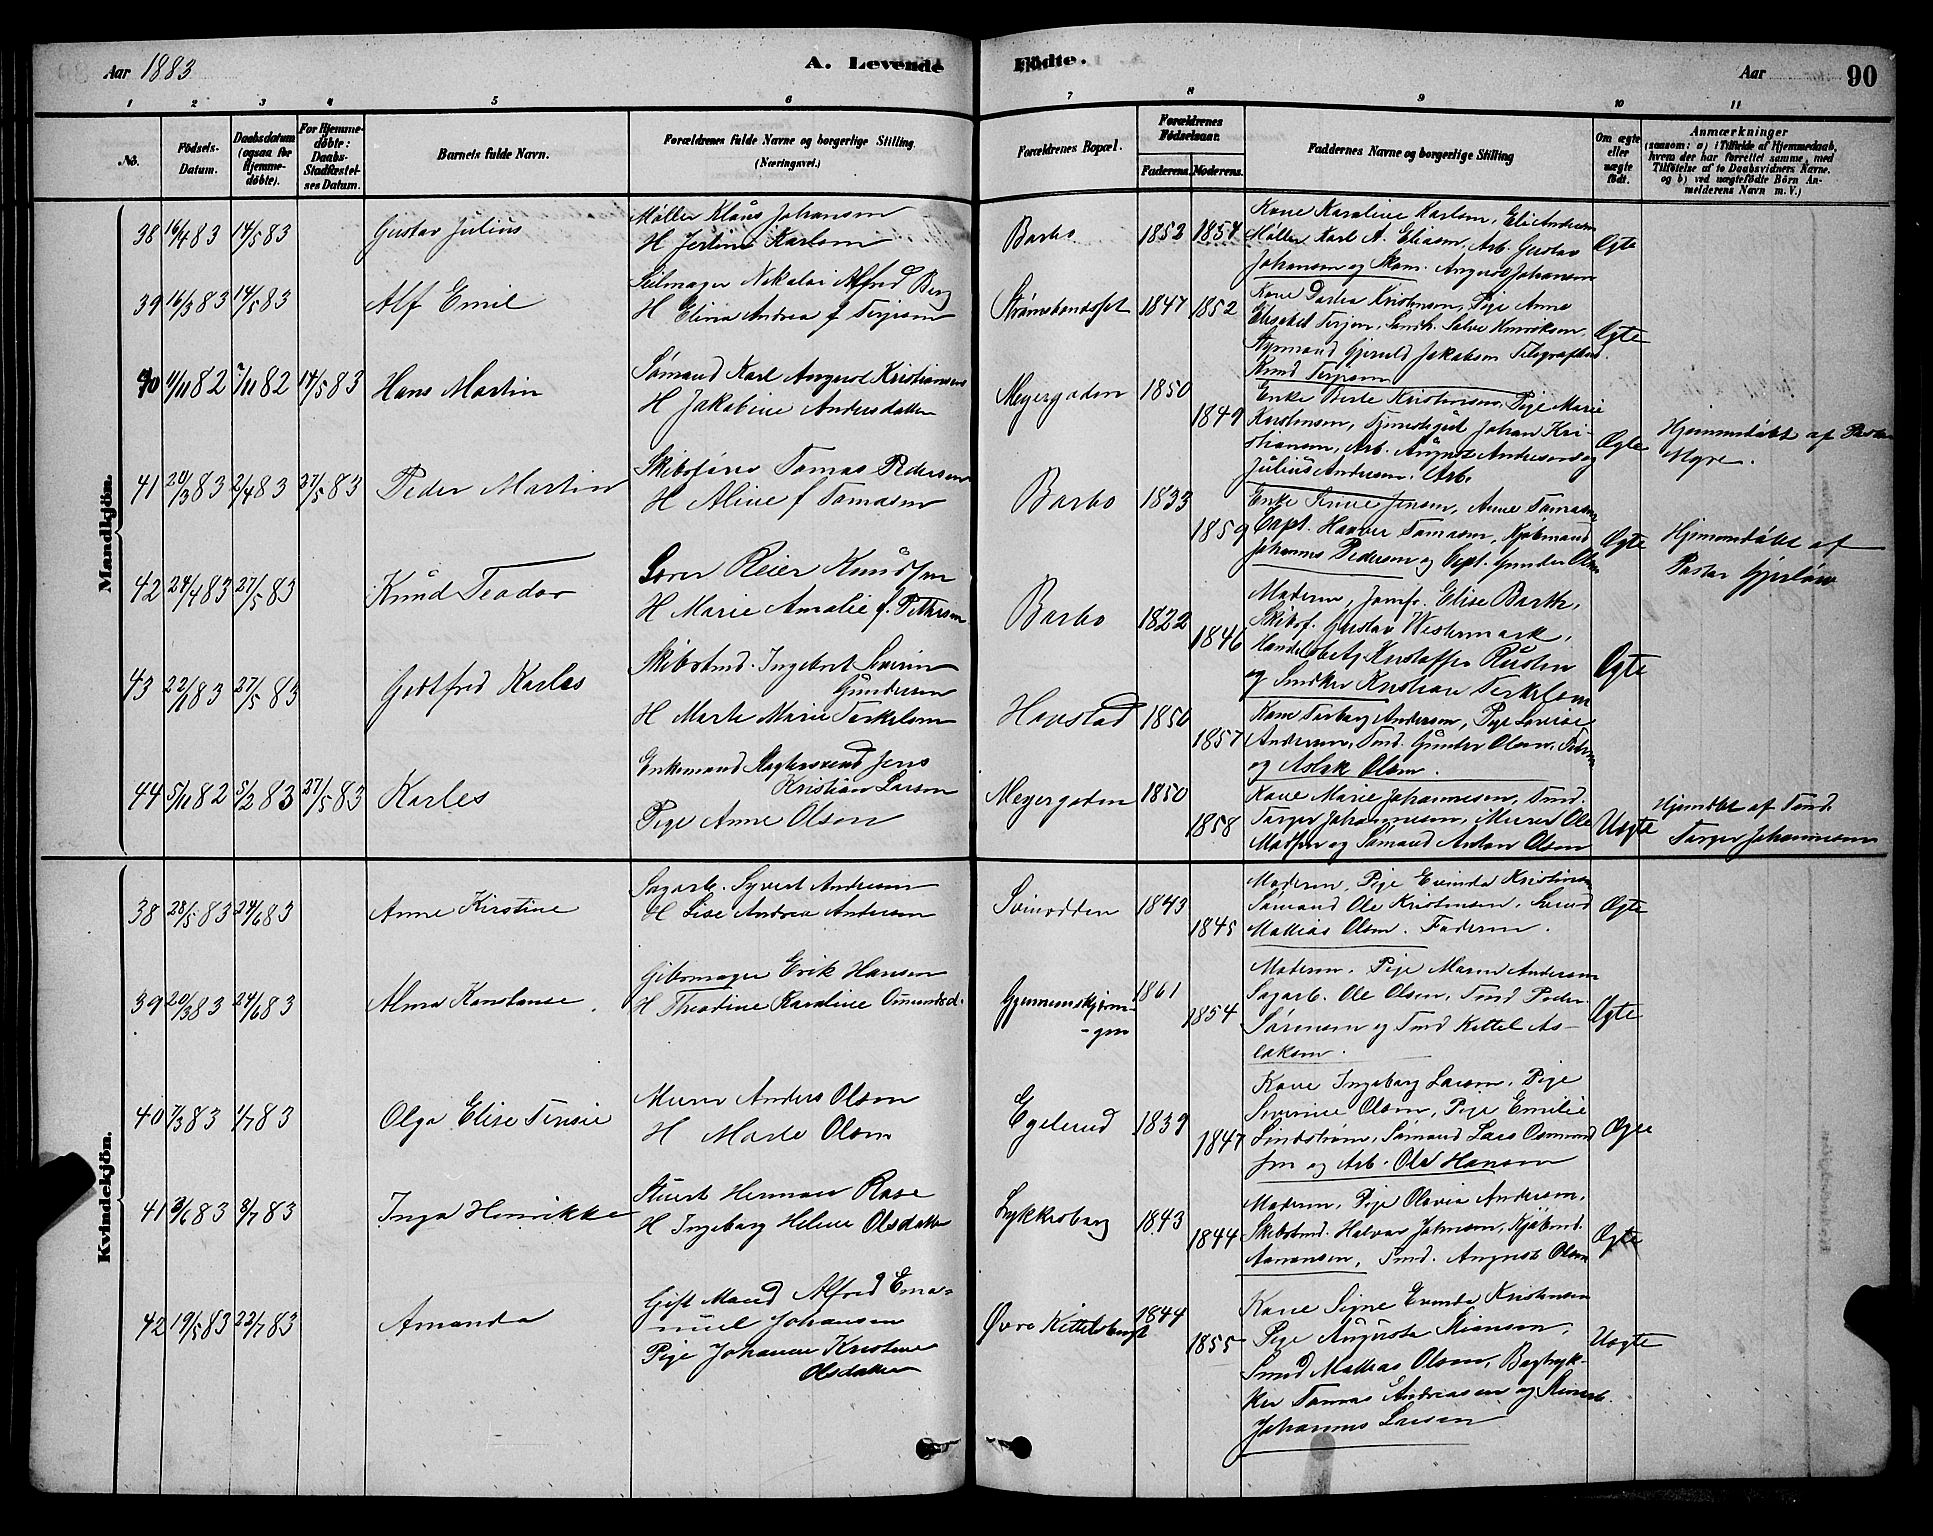 Aar 1883
A. Levende Fødte.
Aar 90
1 2 3 4 5 6 7 8 9 10 11
No.
Födsels-Datum.
Daabsdatum (ogsaa för Hjemme-döbte).
For Hjemme-döbte: Daabs-Stadfæstel-ses Datum.
Barnets fulde Navn.
Forældrenes fulde Navne og borgerlige Stilling. (Næringsvei.)
Forældrenes Bopæl.
Forældrenes Födselsaar.
Faderens. Moderens.
Faddernes Navne og borgerlige Stilling
Om ægte eller uægte födt.
Anmærkninger
(saasom: a) i Tilfælde af Hjemmedaab,
hvem der har forrettet samme, med
Tilföielse af to Daabsvidners Navne.
og b) ved uægtefödte Börn An-
melderens Navn m. V.)
Mandkjön.
38 16/4 83 14/5 83
Gustav Julius
Møller Klaus Johansen
H Jertine Karlsen
Barbo 1852 1854
Kone Karoline Karlsen, Eli Andersen
Møller Karl A. Eliasen, Arb. Gustav
Johansen og Skom. August Johansen
Ægte
39 16/3 83 14/5 83
Alf Emil
Seilmager Nikolai Alfred Berg
H Elina Andrea f Terjesen
Strømsbundsfjet 1847 1852
Kone Dorthea Kristensen, Pige Anne
Elisabet Terjesen, Salve Henriksen,
Styrmand Gjeruld Jakobsen
Knud Terjesen
Ægte
40 11/11 82 7/11 82 14/5 83
Hans Martin
Sømand Karl August Kristiansen
H Jakobine Andersdatter
Meyergaden 1850 1849
Enke Berte Kristensen, Pige Marie
Kristensen, Tjenestegut Johan Kri-
stiansen, Arb. August Andersen og
Julius Andersen, Arb.
Ægte
Hjemmedøbt af Pastor
Myre.
41 20/3 83 2/4 83 27/5 83
Peder Martin
Skibsfører Tomas Pedersen
H Aline f Tomasen
Barbo 1833 1859
Enke Trine Jensen, Anne Tomasen
Capt. Hanver Tomasen, Kjøbmand
Johannes Pedersen og Capt. Gunder Olsen
Ægte
Hjemmedøbt af
Pastor Gjerløw
42 24/4 83 27/5 83
Knud Teodor
Reier Knudsen
H Marie Amalie f. Pettersen
Barbo 1822 1846
Moderen, Jomfr. Elise Barth,
Skibsf. Gustav Westermark,
Handelsbetj Kristoffer Rusten
og Snedker Kristian Terkelsen
Ægte
43 22/1 83 27/5 83
Gotfred Karles
Skibstmd. Ingebret Severin
Gundersen
H Marte Marie Terkelsen
Havstad 1850 1857
Kone Torborg Andersen, Pige Lovise
Andersen, Tmd. Gunder Olsen,
og Aslak Olsen.
44 5/11 82 5/2 83 27/5 83
Karles
Enkemand Slagtersvend Jens
Kristian Larsen
Pige Anne Olsen
Meyergaden 1850 1858
Kone Marie Johannesen, Tmd.
Torger Johannesen, Murer Ole
Madsen og Sømand Anton Olsen
Uægte
Hjemdbt af Tmd.
Torger Johannesen
Kvindekjön.
38 28/5 83 24/6 83
Anne Kirstine
Sagarb. Syvert Andersen
H Lise Andrea Andersen
Svinodden 1843 1845
Moderen, Pige Evinda Kristensen
Sømand Ole Kristensen,
Mathias Olsen. Faderen.
Ægte
39 20/3 83 24/6 83
Alma Konstanse
Gibsmager Erik Hansen
H Theodine Karoline Omundsd.
1861 1854
Moderen, Pige Maren Andersen
Sagarb. Ole Olsen, Tmd Peder
Sørensen og Tmd Kittel As-
laksen.
Ægte
40 7/3 83 1/7 83
Olga Elise Tensie
Murer Anders Olsen
H Marte Olsen
Egelund 1839 1847
Kone Ingeborg Larsen, Pige
Severine Olsen, Pige Emilie
Lindstrøm, Sømand Lars Osmund
sen og Arb. Ole Hansen
Ægte
41 3/6 83 8/7 83
Inga Henrikke
Stuert Herman Rose
H Ingeborg Helene Olsdatter
Lykkesborg 1843 1844
Moderen, Pige Olovia Andersen,
Skibstmd. Halvor Johnsen, Kjøbmd.
Aanonsen, Tmd. August Olsen
Ægte
42 19/5 83 22/7 83
Amanda
Gift Mand Alfred Ema-
nuel Johansen
Pige Johanne Kristine
Olsdatter
Øvre Kittelsbugt 1844 1855
Kone Signe Evinda Kristensen
Pige Augusta Stiansen,
Smed Mathias Olsen, Bogtryk-
ker Tomas Andreasen og
Johannes Larsen
Uægte